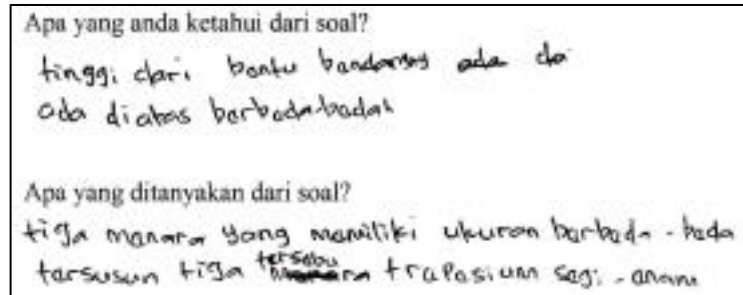 Apa yang anda ketahui dari soal?
tinggi dari bentu ada da
ada diatas berbeda-bedah
Apa yang ditanyakan dari soal?
tiga manara yang memiliki ukuran berbeda-beda
tersusun tiga tersebu trapasium segi-anam